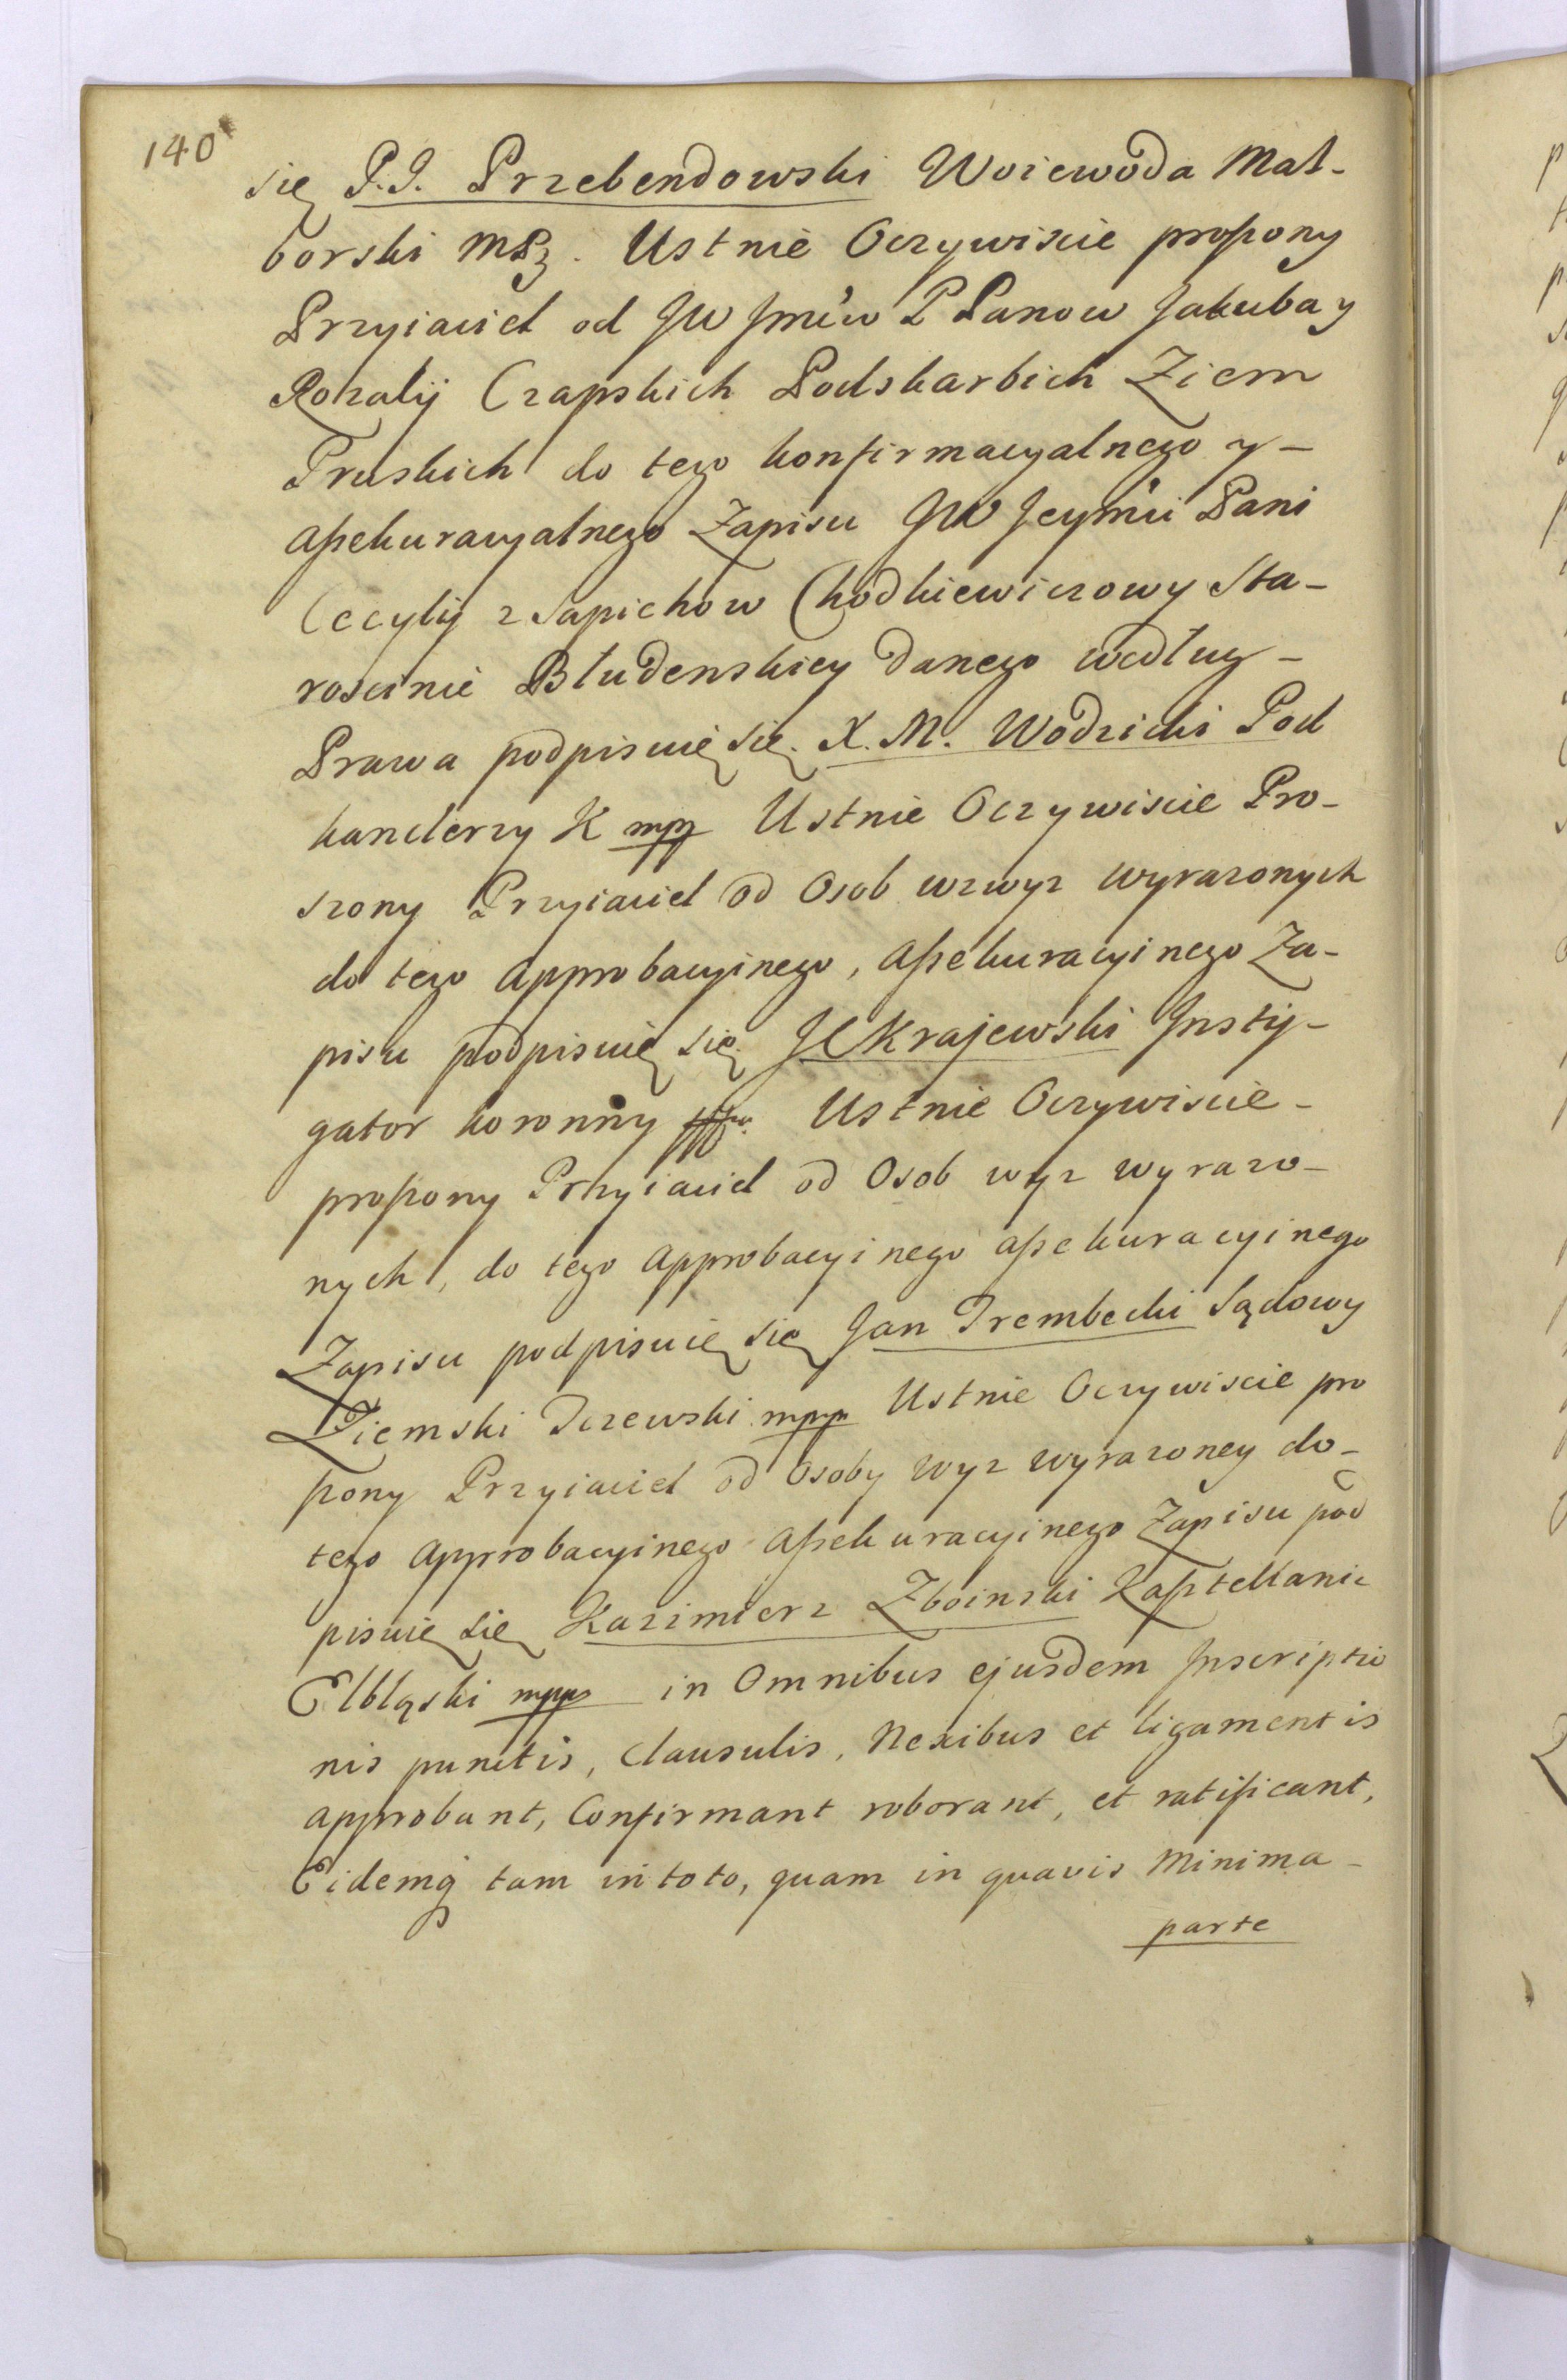 140
się P. J. Przebendowski Woiewoda Mal-
borski MPz. Ustnie Oczywiscie proszony
Przyiaciel od JW Jmciow P Panow Jakuba y
Rozalij Czapskich Podskarbich Ziem
Pruskich do tego konfirmacyalnego y-
assekuracyalnego Zapisu JW Jeymci Pani
Cecylij z Sapiehow Chodkiewiczowy Sta-
roscinie Błudenskiey danego według-
Prawa podpisuię się. X. M. Wodzicki Pod
kanclerzy K mpp Ustnie Oczywiscie Pro-
szony Przyiaciel od Osob wzwyz wyrazonych
do tego approbacyinego, assekuracyinego Za-
pisu podpisuię się JCKrajewski Insty-
gator koronny Ustnie Oczywiscie-
proszony Przyiaciel od Osob wyz wyrazo-
nych, do tego approbacyinego assekuracyinego
Zapisu podpisuię się Jan Trembecki Sądowy
Ziemski Tczewski mpp Ustnie Oczywiscie pro
szony Przyiaciel od Osoby wyz wyrazoney do-
tego approbacyinego assekuracyinego Zapisu pod
pisuię się Kazimierz Zboinski Kasztellanic
Elbląski mpp in Omnibus ejusdem Inscriptio
nis punctis, Clausulis, Nexibus et ligamentis
approbant, Confirmant roborant, et ratificant,
Eidemq́ tam in toto, quam in quavis Minima-
parte